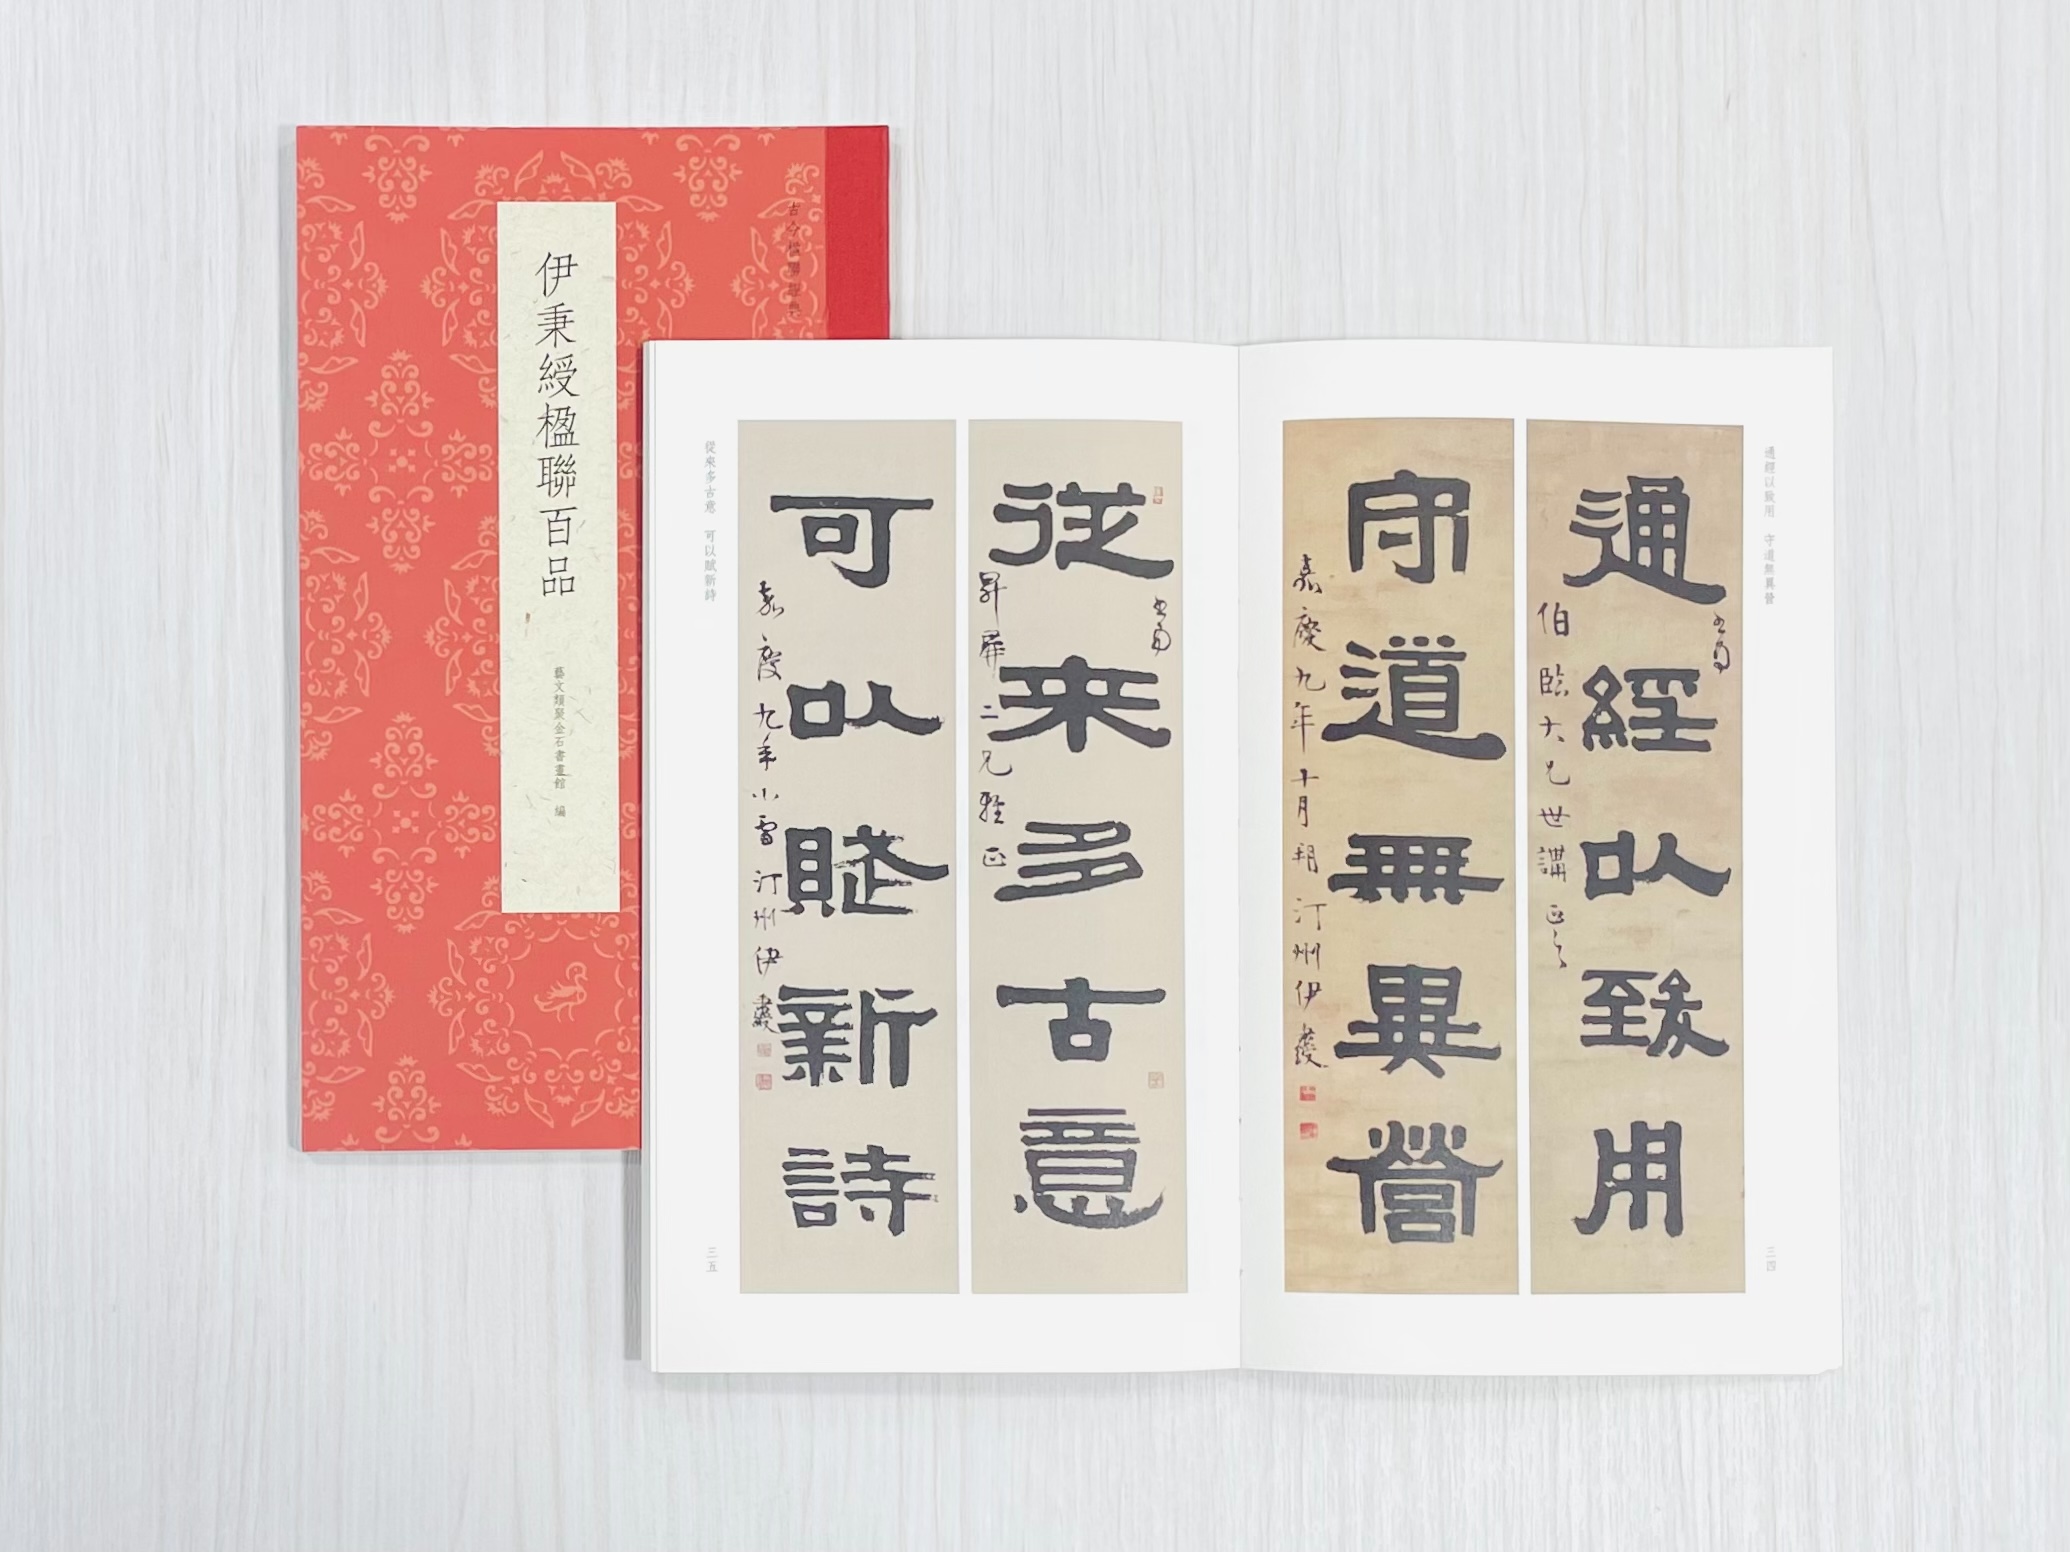 古今楹聯聚典
伊秉綬楹聯百品
藝文類聚金石書畫館 編
通經以致用 守道無異營
三四
通經以致用
伯臨大兄世講正之
守道無異營
嘉慶九年十月朔汀州伊
從來多古意
昇屏二兄雅正
可以賦新詩
嘉慶九年小雪汀州伊
從來多古意 可以賦新詩
三五